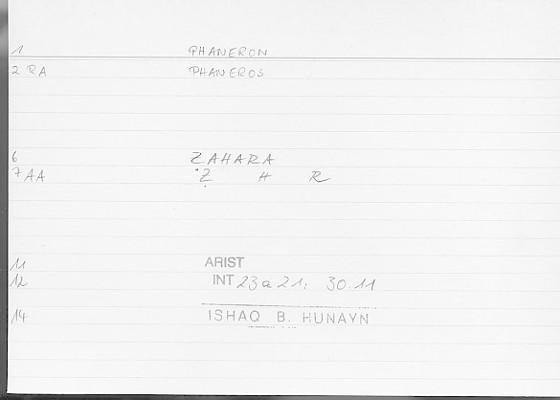 1 PHANERON
2 RA PHANEROS
6 ZAHARA
7 AA Ẓ H R
11 ARIST
12 INT 23a21: 30.11
14 ISHAQ B. HUNAYN